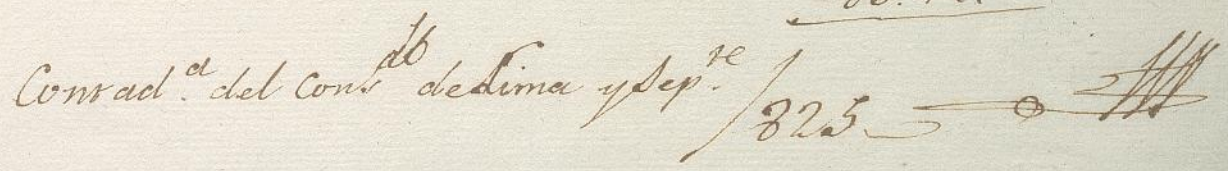 Contad.ª del Cons.do de Lima y Sep.re /825